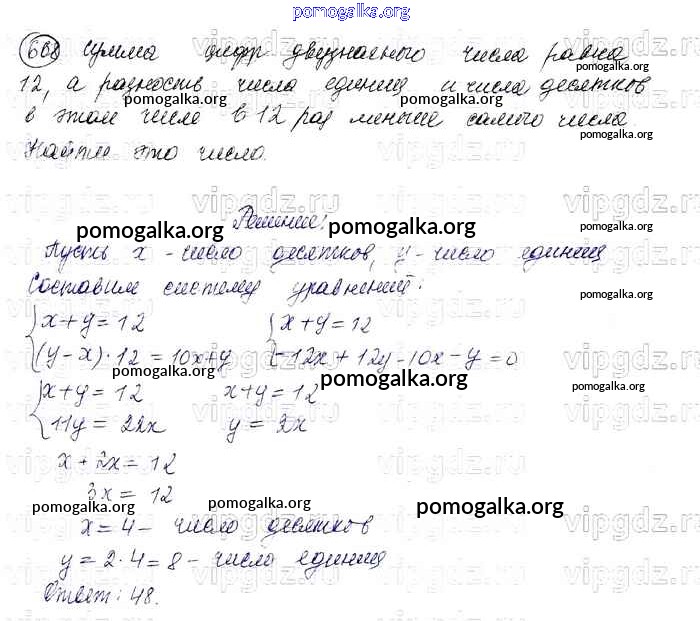 pomogalka.org
668 Сумма цифр двузначного числа равна
pomogalka.org
12, а разность числа единиц и числа десятков
pomogalka.org pomogalka.org
в этом числе в 12 раз меньше самого числа.
pomogalka.org
Найти это число.
Решение:
pomogalka.org pomogalka.org
Пусть x - число десятков, y - число единиц
Составим систему уравнений:
pomogalka.org
{x+y=12 {x+y=12
{(y-x)·12=10x+y {-12x+12y-10x-y=0
pomogalka.org pomogalka.org pomogalka.org
{x+y=12 x+y=12
{11y=22x y=2x
x+2x=12
3x=12
pomogalka.org pomogalka.org pomogalka.org
x=4 - число десятков
y=2·4=8 - число единиц
Ответ: 48.